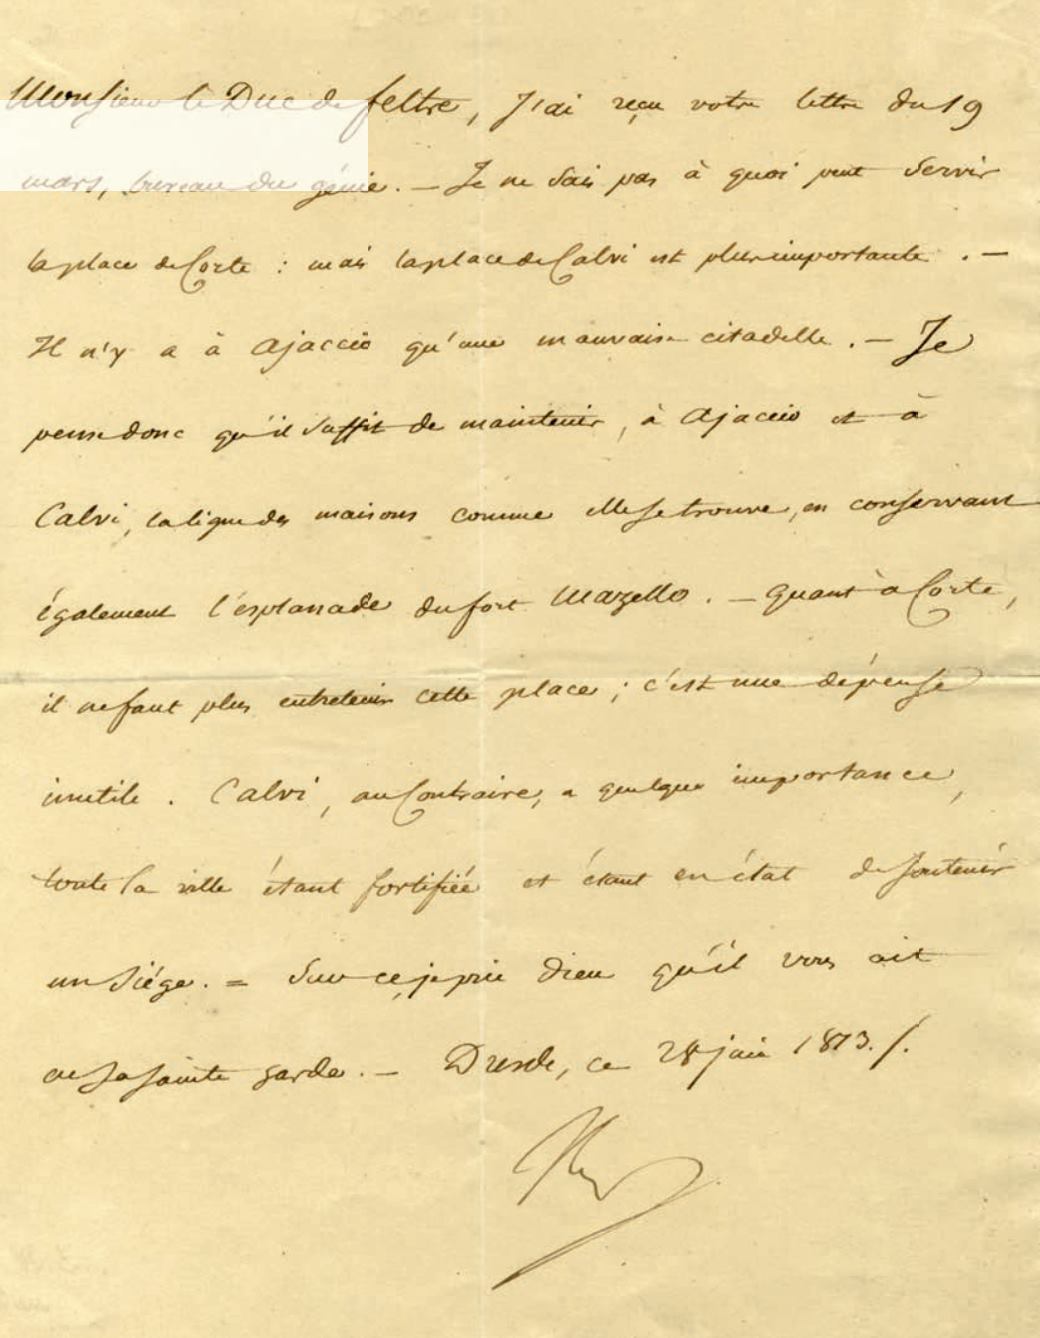 Monsieur le Duc de feltre, J'ai reçu votre lettre du 19
mars, bureau du génie. — Je ne sais pas à quoi peut servir
la place de Corte : mais la place de Calvi est plus importante. —
Il n'y a à Ajaccio qu'une mauvaise citadelle. — Je
pense donc qu'il suffit de maintenir, à Ajaccio et à
Calvi, la ligne des maisons comme elle se trouve, en conservant
également l'esplanade du fort Mazello. — Quant à Corte,
il ne faut plus entretenir cette place ; c'est une dépense
inutile. Calvi, au Contraire, a quelque importance,
toute la ville étant fortifiée et étant en état de soutenir
un siége. = Sur ce, je prie Dieu qu'il vous ait
en sa sainte garde. — Dresde, ce 28 juin 1813./.